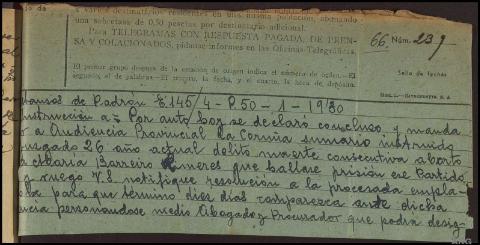 a varios destinatarios residentes en una misma población, abonando
una sobretasa de 0,50 pesetas por destinatario adicional.
Para TELEGRAMAS CON RESPUESTA PAGADA, DE PREN-
SA Y COLACIONADOS, pídanse informes en las Oficinas Telegráficas.
El primer grupo después de la estación de origen indica el número de orden.—El
segundo, el de palabras.—El tercero, la fecha, y el cuarto, la hora de depósito.
66. Núm. 239
Sello de fechas
de Padrón E 145/4 - P. 50 - 1 - 19/30
Instrucción a = Por auto hoy se declaró concluso y manda
a Audiencia Provincial La Coruña sumario instruido
Juzgado 26 año actual delito muerte consecutiva aborto
a María Barreiro que hallase prisión ese Partido
y ruego V. S. notifique resolución a la procesada empla-
para que término diez días comparezca ante dicha
encia personandose medio Abogado y Procurador que podrá desig-